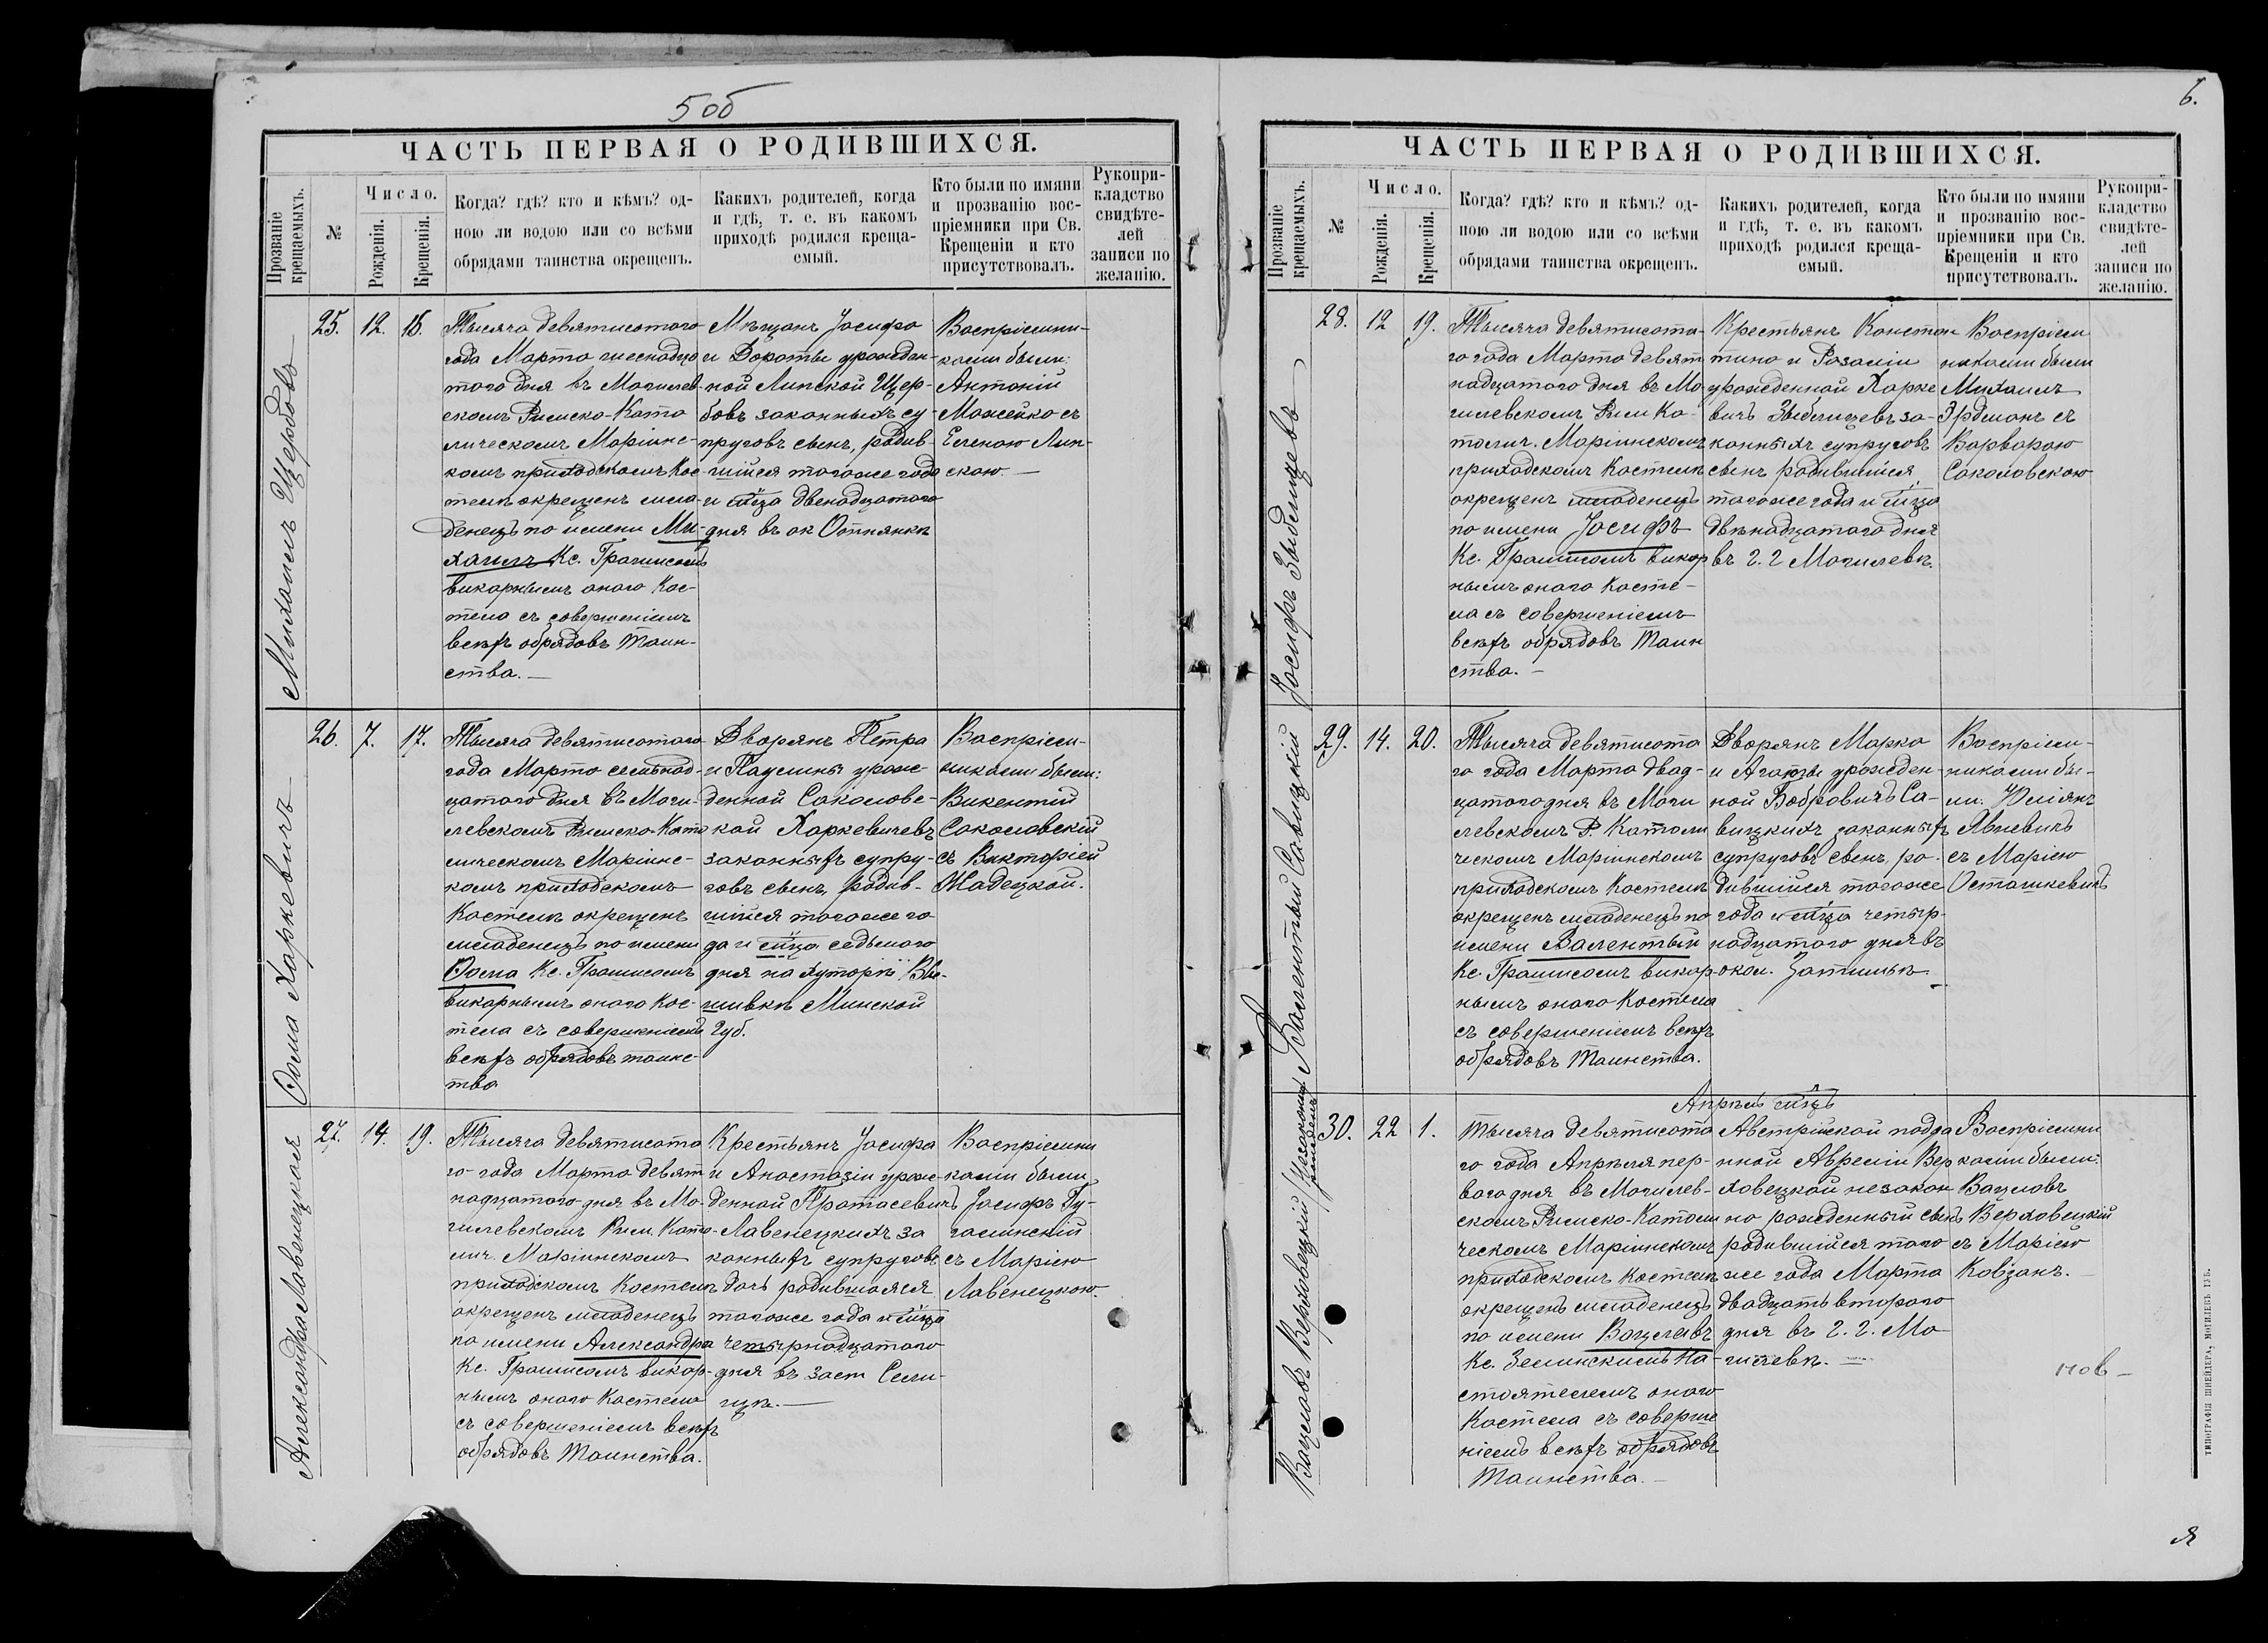 5 об
ЧАСТЬ ПЕРВАЯ О РОДИВШИХСЯ.
Прозваніе крещаемыхъ.
№
Число.
Рожденія.
Крещенія.
Когда? гдѣ? кто и кѣмъ? од-
ною ли водою или со всѣми
обрядами таинства окрещенъ.
Какихъ родителей, когда
и гдѣ, т. е. въ какомъ
приходѣ родился креща-
емый.
Кто были по имяни
и прозванію вос-
пріемники при Св.
Крещеніи и кто
присутствовалъ.
Рукопри-
кладство
свидѣте-
лей
записи по
желанію.
Михаилъ Щербовъ
25.
12.
16.
Тысяча девятисотаго
года Марта шеснадца
таго дня въ Могилев-
скомъ Римско-Като
лическомъ Маріинс-
комъ приходскомъ Кос-
телѣ окрещенъ мла-
денецъ по имени Ми-
хаилъ Кс. Грашисомъ
викарнымъ онаго Кос-
тела съ совершеніемъ
всѣхъ обрядовъ Таин-
ства. —
Мѣщанъ Іосифа
и Дороты урожден-
ной Липской Щер-
бовъ законныхъ су-
пруговъ сынъ, родив-
шійся тогоже года
и м҃ца двенадцатаго
дня въ ок Отнянкѣ
Воспріемни-
ками были:
Антоній
Можейко съ
Еленою Лип-
скою. —
Ѳома Харкевичъ
26.
7.
17.
Тысяча девятисотаго
года Марта семьнад-
цатаго дня въ Моги-
левскомъ Римско-Като
лическомъ Маріинс-
комъ приходскомъ
Костелѣ окрещенъ
младенецъ по имени
Ѳома Кс. Грашисомъ
викарнымъ онаго Кос-
тела съ совершеніемъ
всѣхъ обрядовъ таинс-
тва
Дворянъ Петра
и Паулины урож-
денной Соколовс-
кой Харкевичевъ
законныхъ супру-
говъ сынъ, родив-
шійся тогоже го
да и м҃ца седьмого
дня на хуторѣ Вы-
шивкѣ Минской
Губ.
Воспріем-
никами были:
Викентій
Соколовскій
съ Викторіей
Жадецкой.
Александра Лавенецкая
27.
14.
19.
Тысяча девятисота
го года Марта девят
надцатаго дня въ Мо-
гилевскомъ Рим. Като-
лич. Маріинскомъ
приходскомъ Костелѣ
окрещенъ младенецъ
по имени Александра
Кс. Грашисомъ викар-
нымъ онаго Костела
съ совершеніемъ всѣхъ
обрядовъ Таинства.
Крестьянъ Іосифа
и Анастазіи урож-
денной Протасевичъ
Лавенецкихъ за
конныхъ супруговъ
дочь родившаяся
тогоже года и м҃ца
четырнадцатаго
дня въ заст Сели-
щѣ. —
Воспріемни
ками были
Іосифъ Гу-
галинскій
съ Маріею
Лавенецкою.
6.
ЧАСТЬ ПЕРВАЯ О РОДИВШИХСЯ.
Прозваніе крещаемыхъ.
№
Число.
Рожденія.
Крещенія.
Когда? гдѣ? кто и кѣмъ? од-
ною ли водою или со всѣми
обрядами таинства окрещенъ.
Какихъ родителей, когда
и гдѣ, т. е. въ какомъ
приходѣ родился креща-
емый.
Кто были по имяни
и прозванію вос-
пріемники при Св.
Крещеніи и кто
присутствовалъ.
Рукопри-
кладство
свидѣте-
лей
записи по
желанію.
Іосифъ Зыблицевъ
28.
12
19.
Тысяча девятисота-
го года Марта девят
надцатаго дня въ Мо
гилевскомъ Рим Ка-
толич. Маріинскомъ
приходскомъ Костелѣ
окрещенъ младенецъ
по имени Іосифъ
Кс. Грашисомъ викар
нымъ онаго Косте-
ла съ совершеніемъ
всѣхъ обрядовъ Таин
ства. —
Крестьянъ Констан
тина и Розаліи
урожденной Харке
вичъ Зыблицевъ за-
конныхъ супруговъ
сынъ родившійся
тогоже года и м҃ца
двѣнадцатаго дня
въ г. г Могилевѣ.
Воспріем
никами были
Михаилъ
Эрдманъ съ
Варварою
Соколовскою
Валентый Савицкій
29.
14.
20.
Тысяча девятисота
го года Марта двад-
цатаго дня въ Моги
левскомъ Р. Католи
ческомъ Маріинскомъ
приходскомъ Костелѣ
окрещенъ младенецъ по
имени Валентый
Кс. Грашисомъ викар-
нымъ онаго Костела
съ совершеніемъ всѣхъ
обрядовъ Таинства.
Дворянъ Марка
и Агаты урожден-
ной Бобровичъ Са-
вицкихъ законныхъ
супруговъ сынъ, ро-
дившійся тогоже
года и м҃ца четыр-
надцатаго дня въ
окол. Затишьѣ —
Воспріем-
никами бы-
ли. Юліянъ
Явневичъ
съ Маріею
Осташкевичъ
Апрѣль м҃цъ
Вацлавъ Верховецкій /незаконно рожденный/
30.
22
1.
Тысяча девятисота
го года Апрѣля пер-
ваго дня въ Могилев-
скомъ Римско-Католи
ческомъ Маріинскомъ
приходскомъ костелѣ
окрещенъ младенецъ
по имени Вацлавъ
Кс. Землинскимъ На-
стоятелемъ онаго
Костела съ соверше
ніемъ всѣхъ обрядовъ
Таинства. —
Австрійской подда
нной Авреліи Вер
ховецкой незакон
но рожденный сынъ
родившійся того
же года Марта
двадцать второго
дня въ г. г. Мо
гилевѣ. —
Воспріемни
ками были:
Вацлавъ
Верховецкій
съ Маріею
Ковзанъ. —
нов —
ТИПОГРАФІЯ ШНЕЙДЕРА, МОГИЛЕВЪ ГУБ.
я